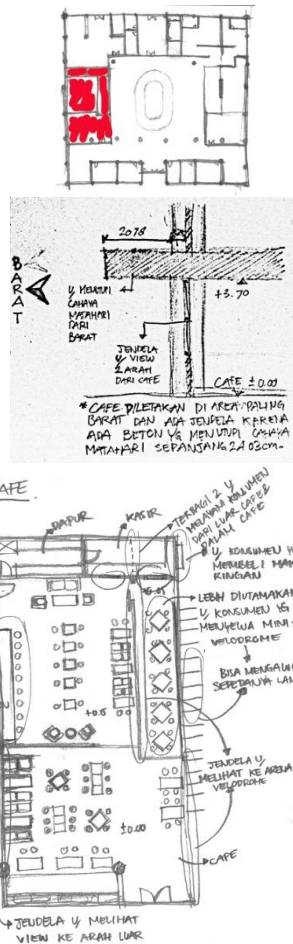 2078
BARAT
U/ MENUTUPI
CAHAYA
MATAHARI
DARI
BARAT
+3.70
JENDELA
U/ VIEW
2 ARAH
DARI CAFE
CAFE ±0.00
* CAFE DILETAKAN DI AREA PALING
BARAT DAN ADA JENDELA KARENA
ADA BETON YG MENUTUPI CAHAYA
MATAHARI SEPANJANG cm.
AFE.
DAPUR
KASIR
TERBAGI 2 U/
MELAYANI KONSUMEN
DARI LUAR CAFE &
DALAM CAFE
U/ KONSUMEN
MEMBELI MAK
RINGAN
LEBIH DIUTAMAKAN
U/ KONSUMEN YG
MENYEWA MINI
VELODROME
BISA
SEPEDANYA
JENDELA U/
MELIHAT KE ARENA
VELODROME
±0.00
CAFE
JENDELA U/ MELIHAT
VIEW KE ARAH LUAR